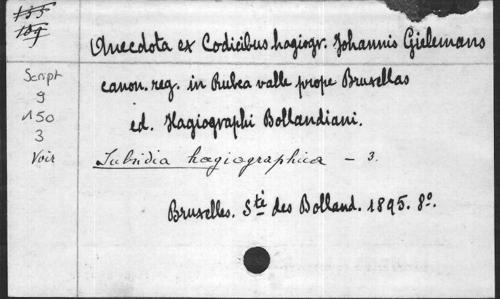 155
159
Anecdota ex Codicibus hagiogr. Johannis Gielemans
canon. reg. in Rubea valle prope Bruxellas
ed. Hagiographi Bollandiani.
Subsidia hagiographica – 3.
Bruxelles. Sté des Bolland. 1895. 8º.
Script
9
150
3
Voir